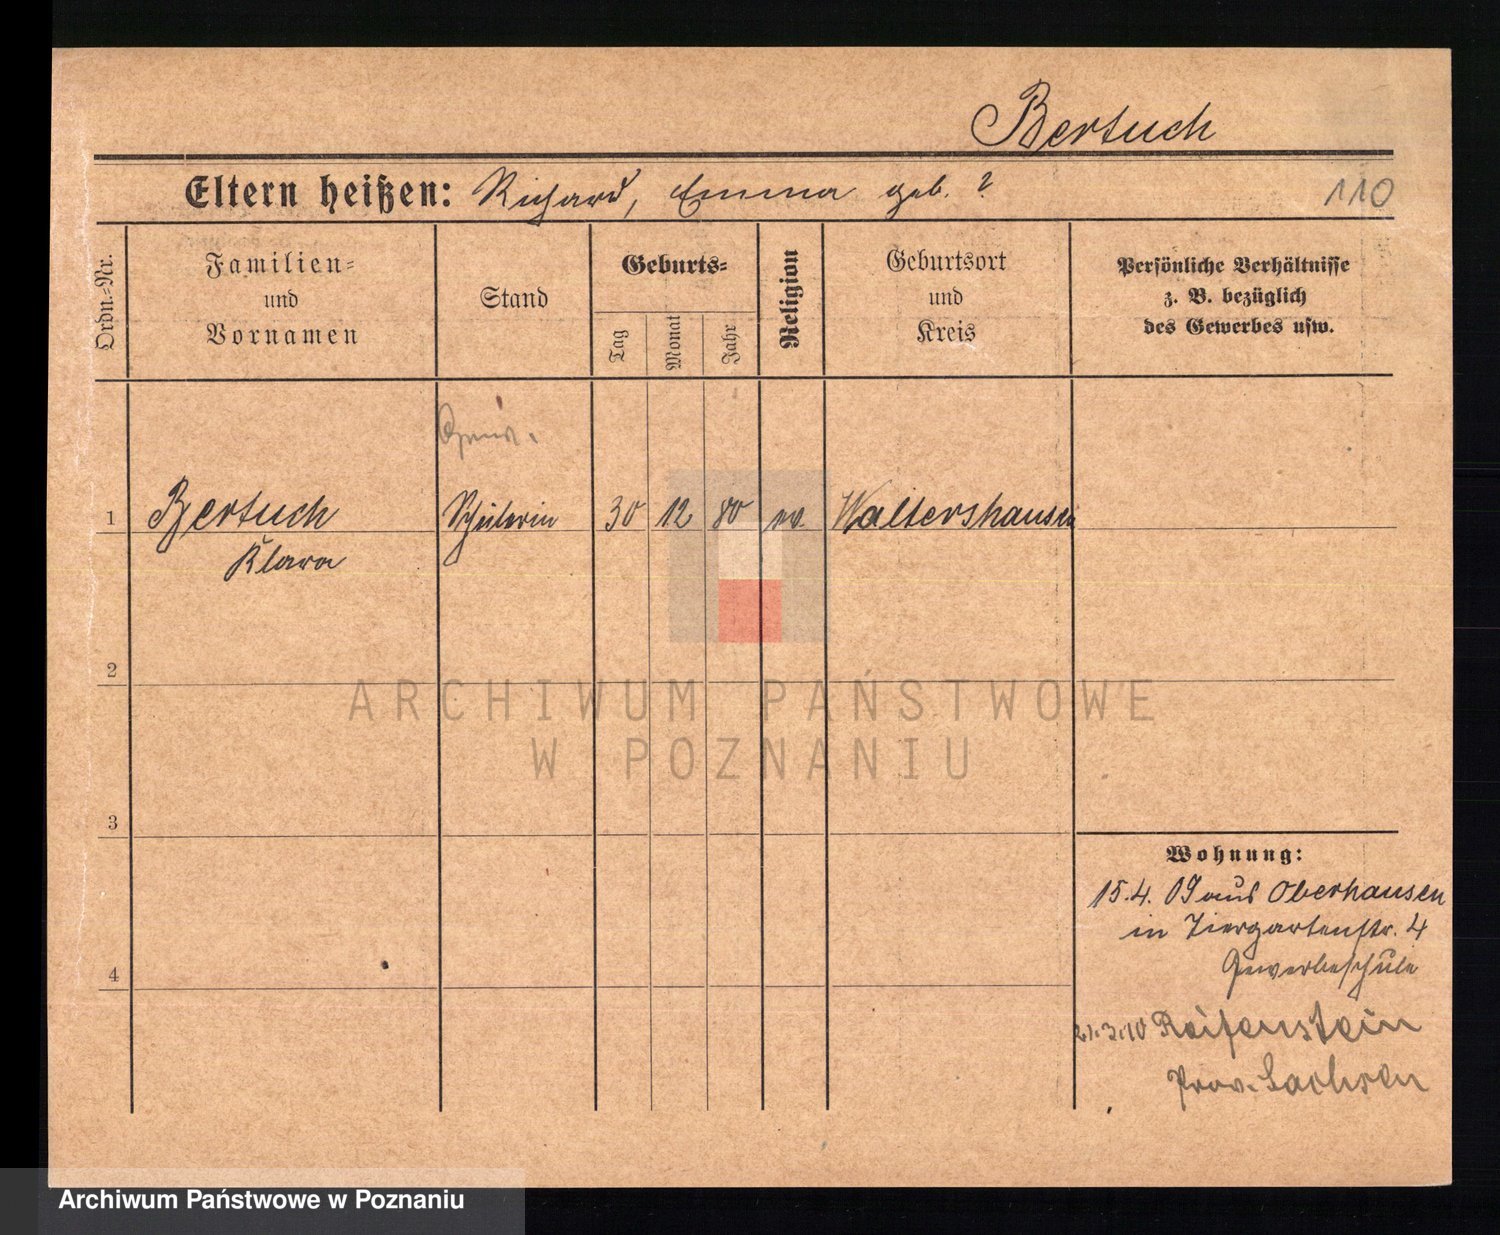 Bertuch
Eltern heißen: Richard, Emma geb. ?
110
Ordn.-Nr.
Familien-
und
Vornamen
Stand
Geburts-
Tag
Monat
Jahr
Religion
Geburtsort
und
Kreis
Persönliche Verhältnisse
z. B. bezüglich
des Gewerbes usw.
1 Bertuch Schülerin 30 12 80 ev. Waltershausen
Klara
2
3
4
Wohnung:
15.4. 09 aus Oberhausen
in Tiergartenstr. 4
Gewerbeschule
21.3.10 Reifenstein
Prov. Sachsen
ARCHIWUM PAŃSTWOWE
W POZNANIU
Archiwum Państwowe w Poznaniu